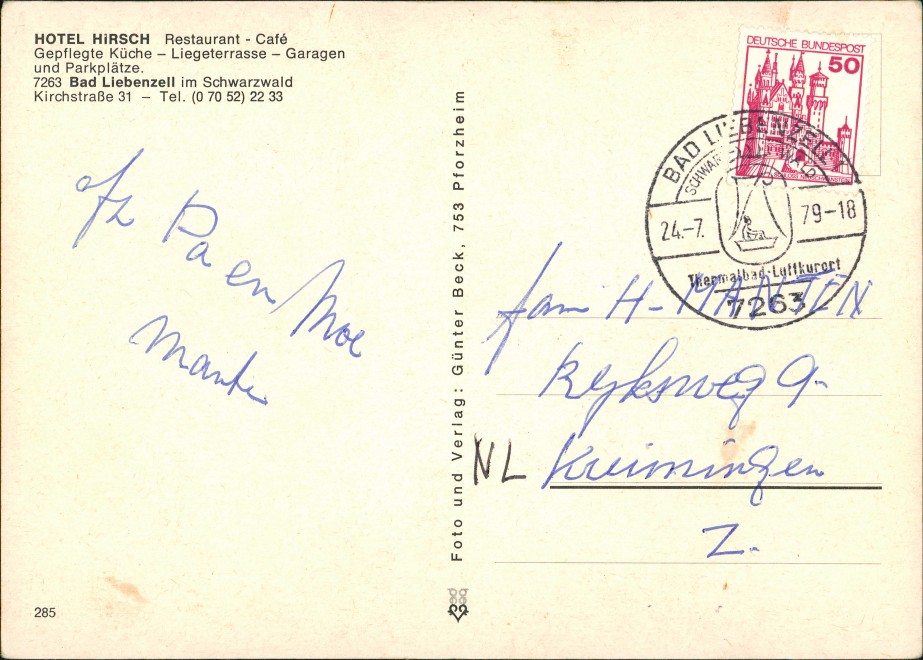 HOTEL HiRSCH Restaurant - Café
Gepflegte Küche – Liegeterrasse – Garagen
und Parkplätze.
7263 Bad Liebenzell im Schwarzwald
Kirchstraße 31 – Tel. (0 70 52) 22 33
Pa en Moe
285
Foto und Verlag: Günter Beck, 753 Pforzheim
DEUTSCHE BUNDESPOST
50
BAD LIEBENZELL
24.-7. 79-18
Thermalbad-Luftkurort
7263
fam H-MANTEN
NL
Z.